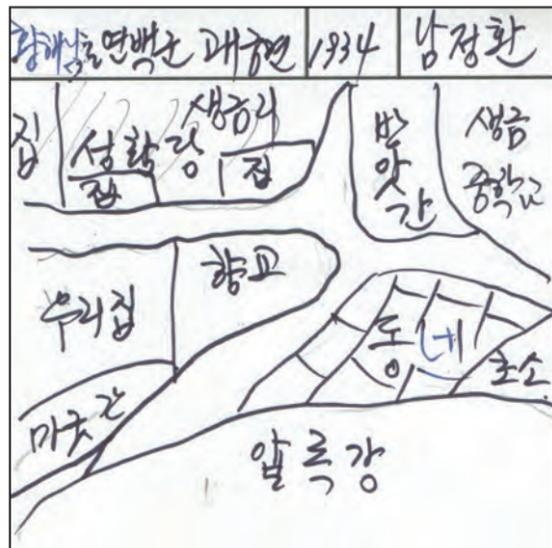 황해남도 연백군 괘현면 1934 남정환
집 성황당 생금리
집 집
방앗간
생금중학교
우리집 향교
동네
초소
마굿간
압록강